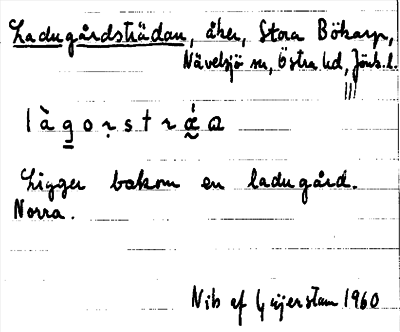 Ladugårdsträdan, åker, Stora Bökarp,
Nävelsjö sn, Östra hd, Jönk. l.
làgorstræ̀a
Ligger bakom en ladugård.
Norra.
Nib af 1960